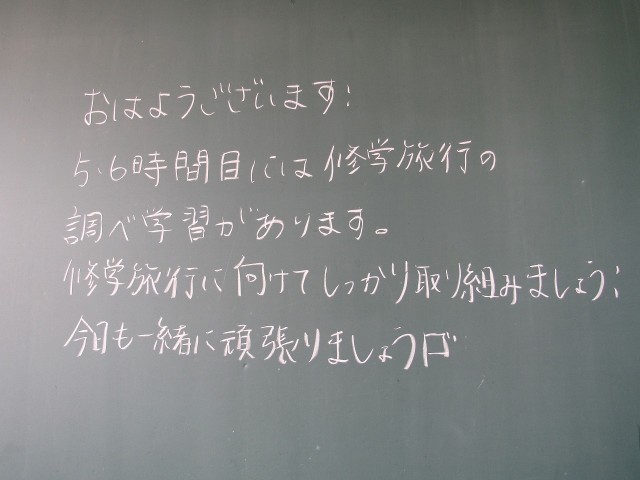 おはようございます!
5・6時間目には修学旅行の
調べ学習があります。
修学旅行に向けてしっかり取り組みましょう!
今日も一緒に頑張りましょう